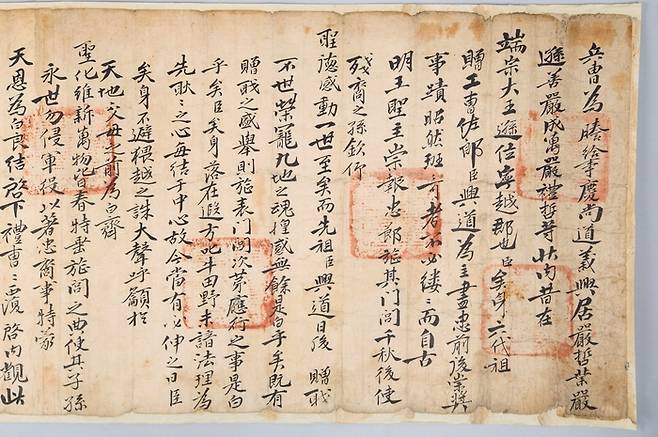 兵曹爲謄給事慶尙道義興居嚴哲業嚴
遜善嚴成萬嚴禮哲等狀內昔在
端宗大王遜位寧越郡也臣矣身六代祖
贈工曹佐郎臣興道爲主盡忠前後崇奬
事蹟昭然班班可考者不必縷縷而自古
明王聖主崇報忠節旌其門閭千秋後使
殘裔之孫欽仰
聖德感動一世至矣而先祖臣興道日後 贈職
不世榮寵九地之魂惶感無餘是白乎矣旣有
贈職之盛擧則旌表門閭次第應行之事是白
乎矣臣矣身落在遐方叱半田野未諳法理爲
先耿耿之心每結于中心故今當有以伸之日臣
矣身不避猥越之誅大聲呼籲於
天地父母之前爲白齊
聖化維新萬物皆春特垂旌閭之典使其子孫
永世勿侵軍役以著忠裔事特蒙
天恩爲白良結啓下禮曹禮曹覆啓內觀此